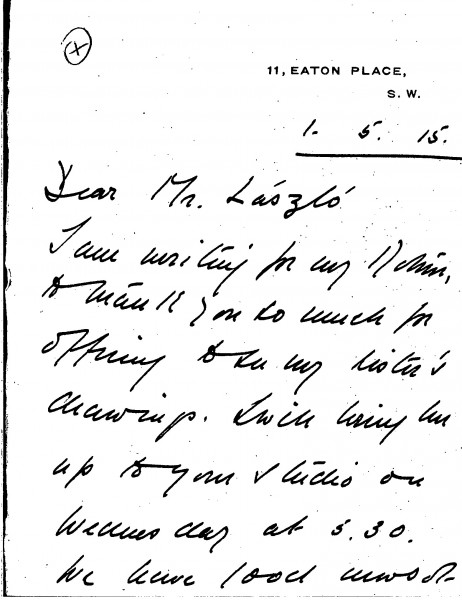 X
11, EATON PLACE,
S. W.
1. 5. 15.
Dear Mr. László
I am writing for my
to thank you so much for
offering to see my sister's
drawings. I will bring her
up to your studio on
Wednesday at
We have